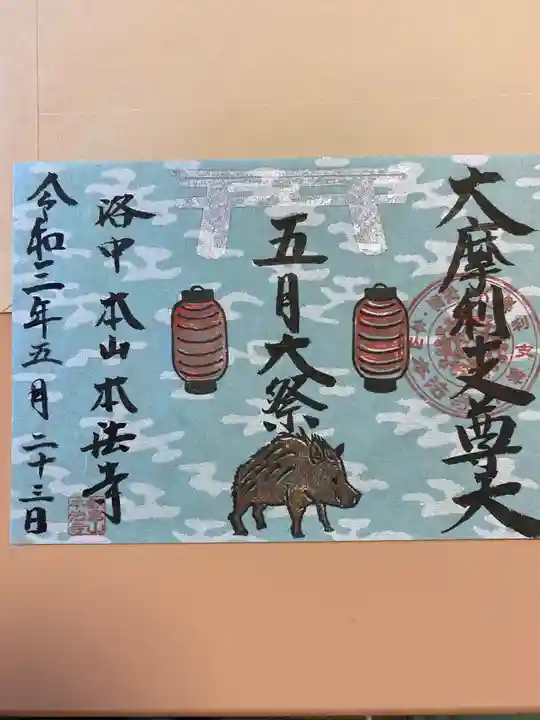 大摩利支尊天
五月大祭
洛中 本山 本法寺
令和三年五月二十三日